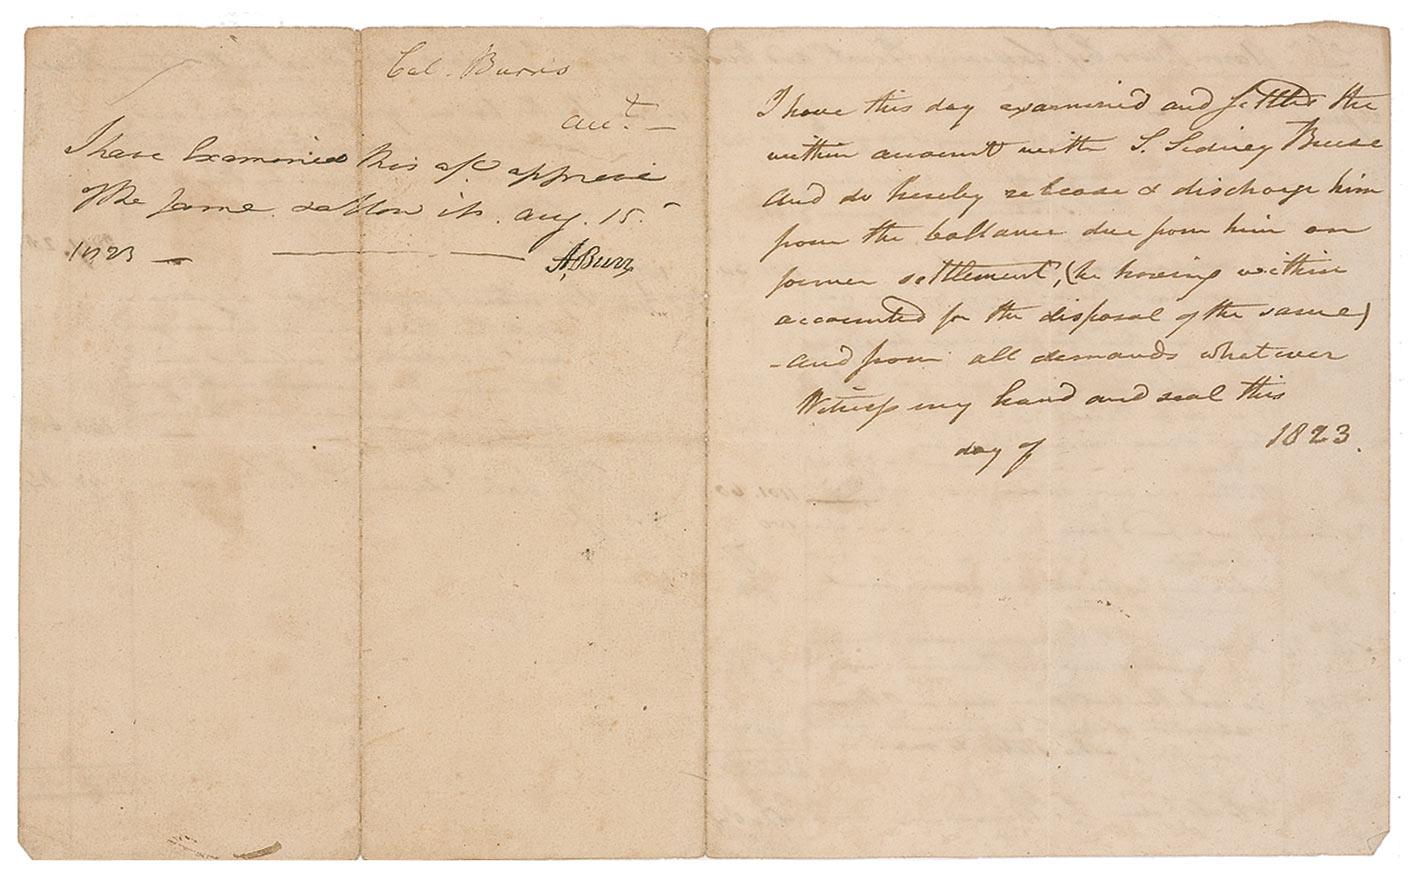 Col. Burr's
acct.
I have Examined this a/c approve
of the same & allow it. Aug. 15.
1823
A, Burr
I have this day examined and settled the
within account with S. Sidney Breese
and do hereby release & discharge him
from the ballance due from him on
former settlement, (he having within
accounted for the disposal of the same)
- and from all demands whatever
Witness my hand and seal this
day of 1823.